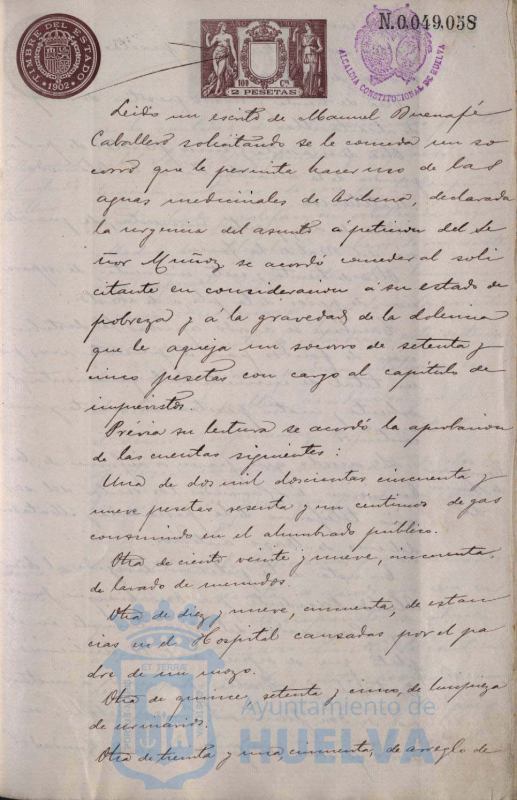 TIMBRE DEL ESTADO
1902
2 PESETAS
N.0.049.058
ALCALDIA CONSTITUCIONAL DE HUELVA
Leido un escrito de Manuel Buenafé
Caballero solicitando se le conceda un so
corro que le permita hacer uso de las
aguas medicinales de Archena, declarada
la urgencia del asunto á peticion del Se
ñor Muñoz se acordó conceder al soli
citante en consideracion á su estado de
pobreza y á la gravedad de la dolencia
que le aqueja un socorro de setenta y
cinco pesetas con cargo al capitulo de
imprevistos.
Prévia su lectura se acordó la aprobacion
de las cuentas siguientes:
Una de dos mil doscientas cincuenta y
nueve pesetas sesenta y un centimos de gas
consumido en el alumbrado público.
Otra de ciento veinte y nueve, cincuenta,
de lavado de menudos.
Otra de diez y nueve, cincuenta, de estan
cias en el Hospital causadas por el pa
dre de un mozo.
Otra de quince, setenta y cinco, de limpieza
de urinarios.
Otra de treinta y una, cincuenta, de arreglo de
ET TERRÆ
Ayuntamiento de
HUELVA